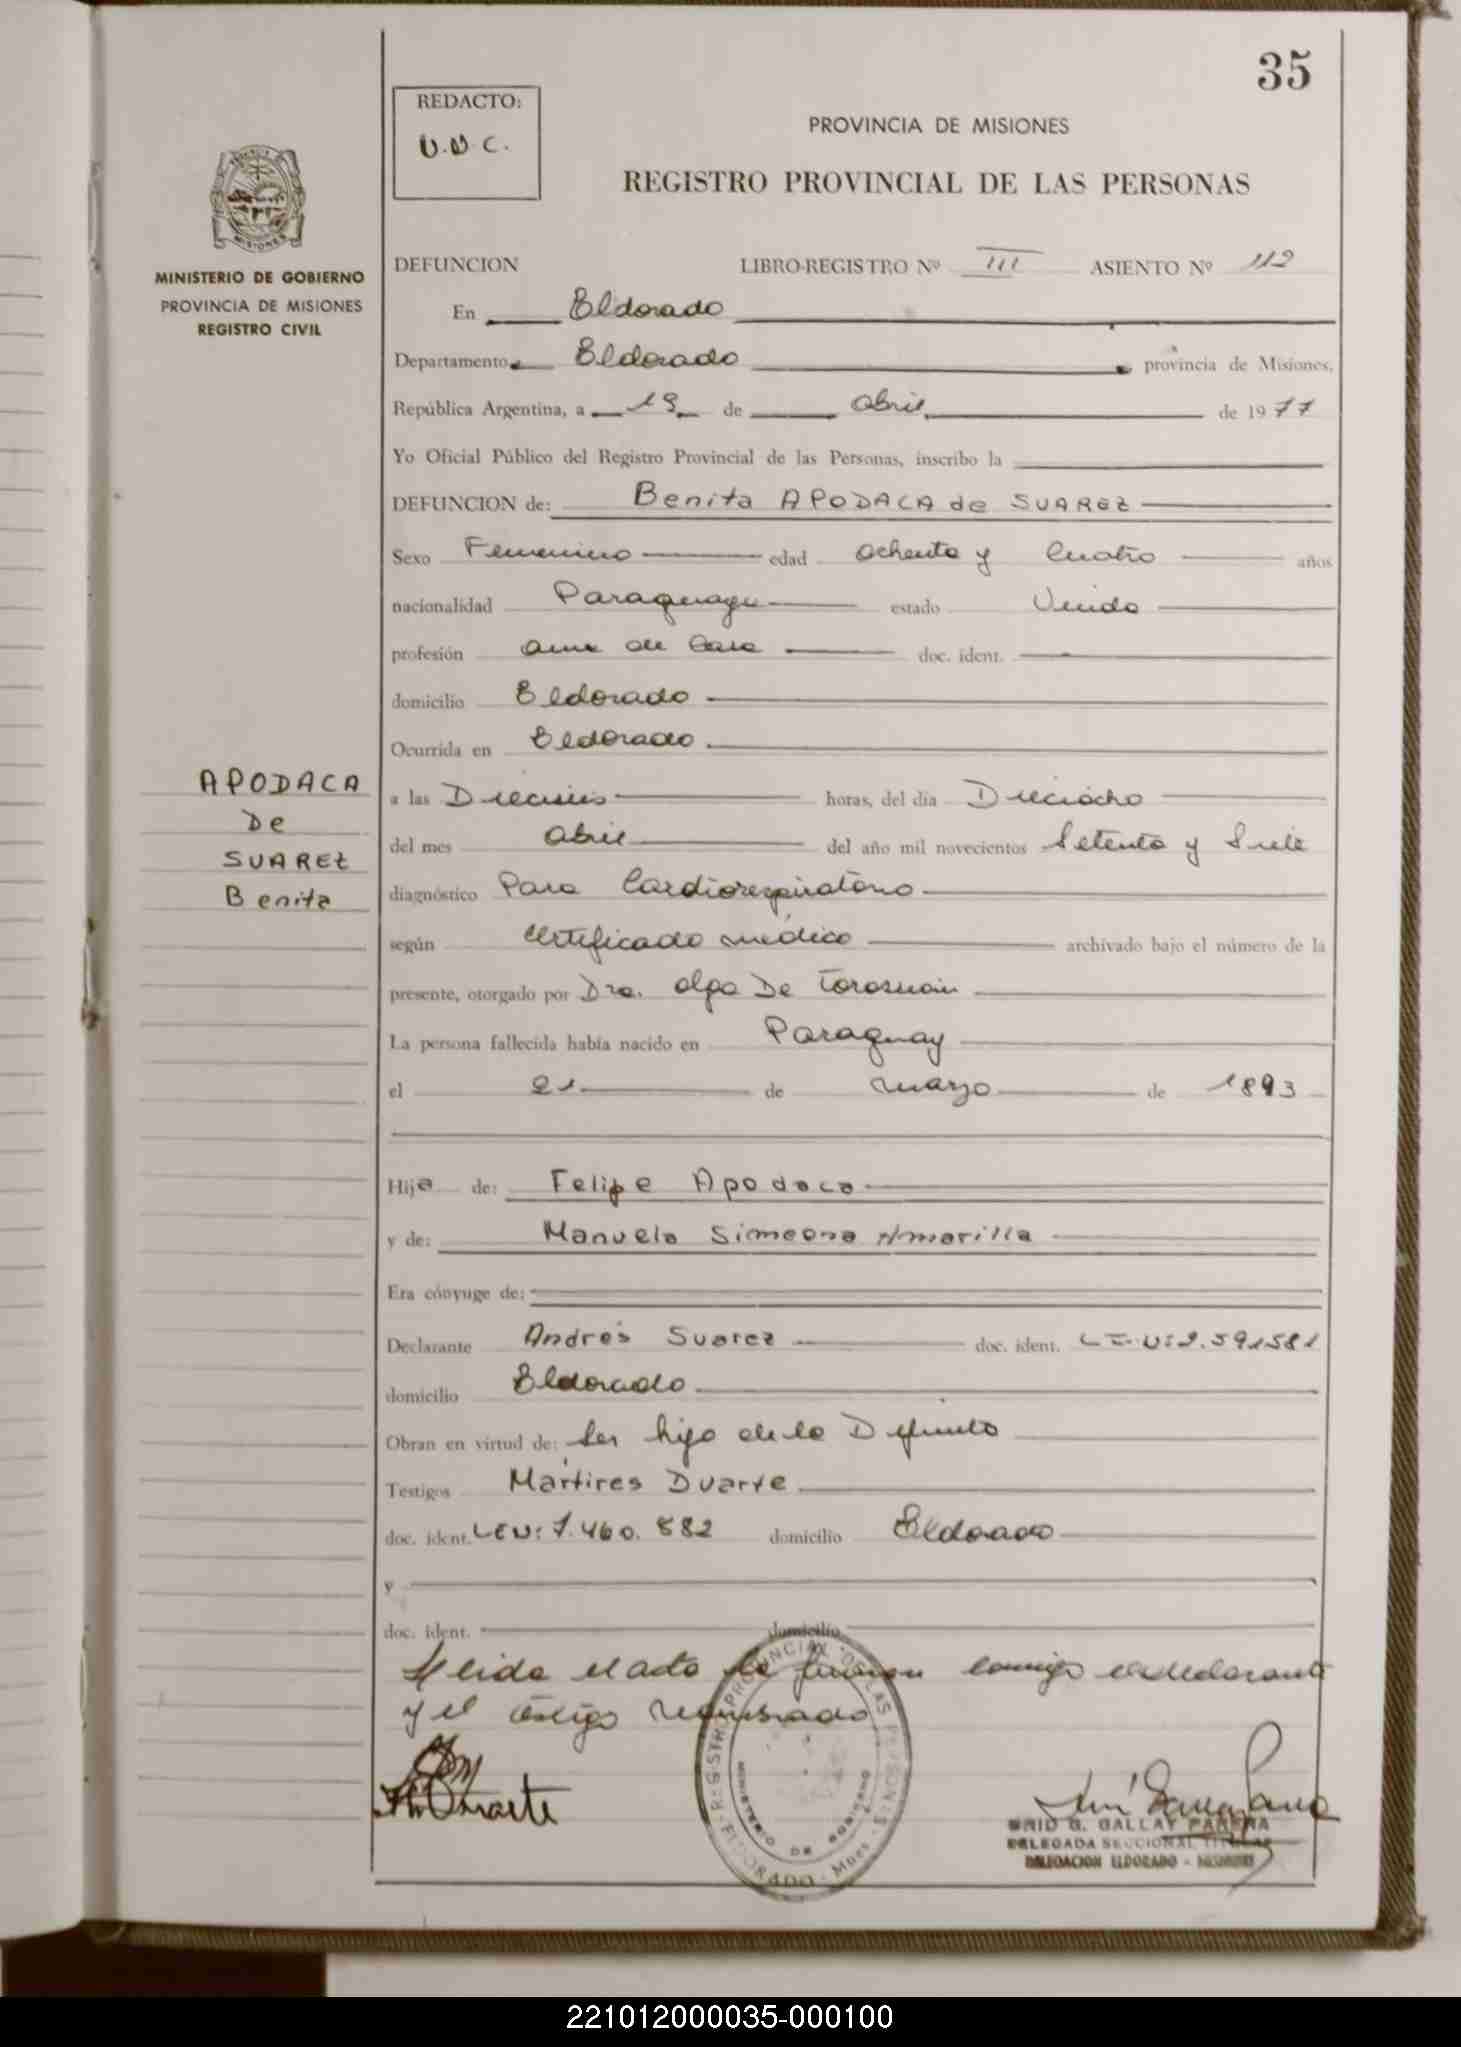 35
REDACTO:
U.N.C.
PROVINCIA DE MISIONES
REGISTRO PROVINCIAL DE LAS PERSONAS
MISIONES
MINISTERIO DE GOBIERNO
PROVINCIA DE MISIONES
REGISTRO CIVIL
DEFUNCION LIBRO-REGISTRO Nº III ASIENTO Nº 112
En Eldorado
Departamento Eldorado provincia de Misiones,
República Argentina, a 19 de abril de 1977
Yo Oficial Público del Registro Provincial de las Personas, inscribo la
DEFUNCION de: Benita APODACA de SUAREZ
Sexo Femenino edad ochenta y cuatro años
nacionalidad Paraguaya estado Viuda
profesión ama de casa doc. ident.
domicilio Eldorado
Ocurrida en Eldorado
APODACA
De
SUAREZ
Benita
a las Dieciseis horas, del día Dieciocho
del mes abril del año mil novecientos Setenta y Siete
diagnóstico Paro Cardiorespiratorio
según certificado medico archivado bajo el número de la
presente, otorgado por Dra. Olga De
La persona fallecida había nacido en Paraguay
el 21 de marzo de 1893
Hija de: Felipe Apodaca
y de: Manuela Simeona Amarilla
Era cónyuge de:
Declarante Andrés Suarez doc. ident. 2.591581
domicilio Eldorado
Obran en virtud de: Ser hijo de la Difunta
Testigos Martires Duarte
doc. ident. LEN: 7.460.882 domicilio Eldorado
y
doc. ident. domicilio
Leida el acta la firman conmigo el declarante
y el testigo nombrado
REGISTRO PROVINCIAL DE LAS PERSONAS
MINISTERIO DE GOBIERNO
ELDORADO - Mnes.
Duarte
G. GALLAY PARERA
DELEGADA SECCIONAL TITULAR
DELEGACION ELDORADO - MISIONES
221012000035-000100